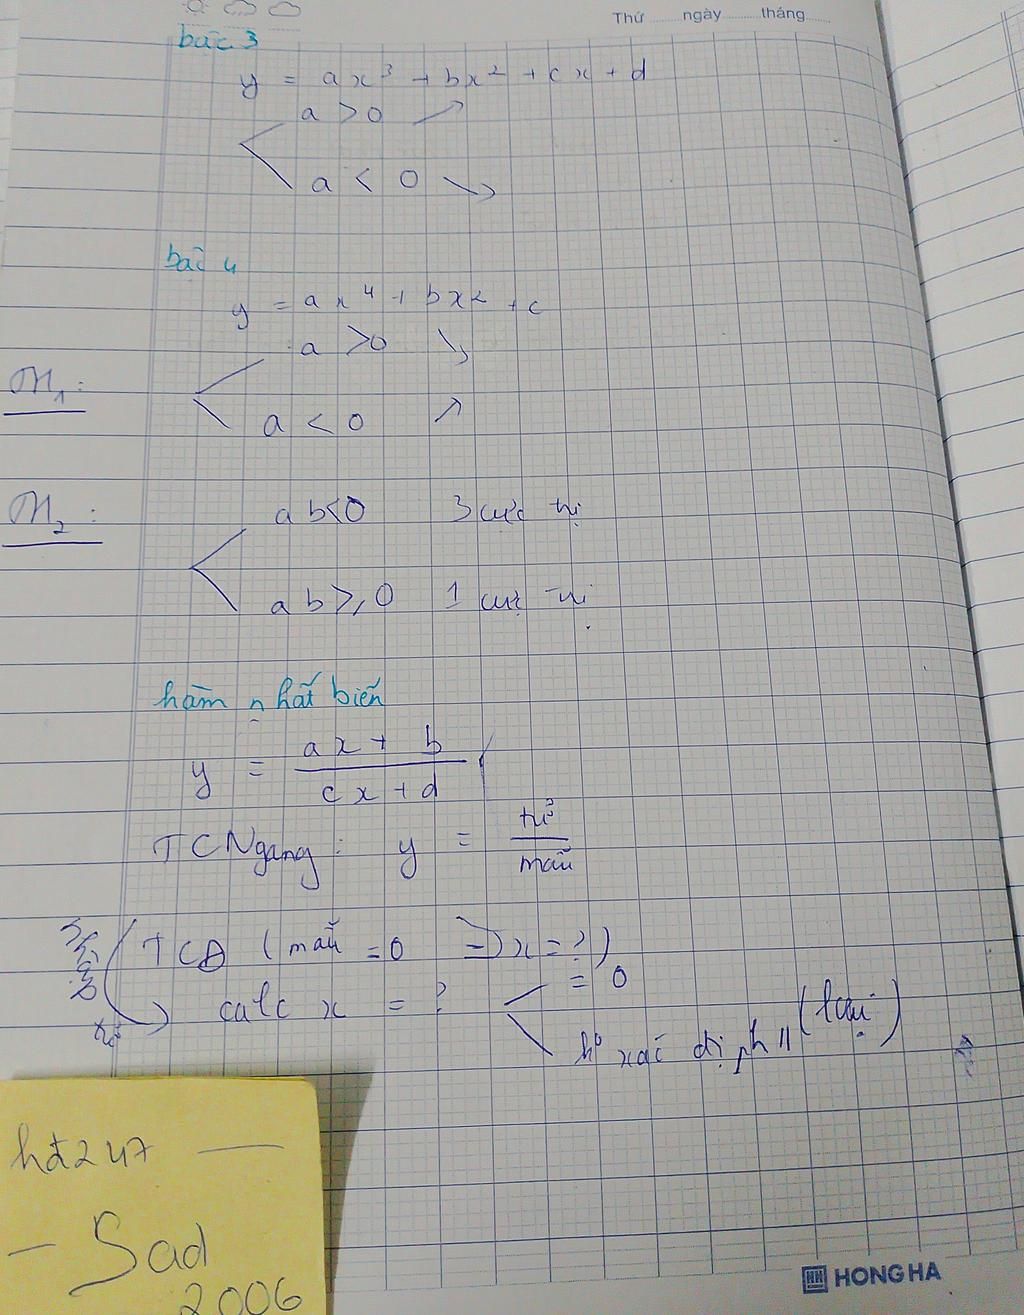 Thứ ........ ngày ........ tháng ........
bậc 3
y = ax³ + bx² + cx + d
a > 0 ↗
a < 0 ↘
bậc 4
y = ax⁴ + bx² + c
a > 0 ↘
M₁ :
a < 0 ↗
M₂ :
ab<0 3 cực trị
ab ≥ 0 1 cực trị
hàm nhất biến
y = (ax + b)/(cx + d)
TCNgang : y = tử/mẫu
TCĐ (mẫu = 0 => x = ?)
= 0
tử calc x = ?
k° xác định // (loại)
hđ247 —
– Sad
2006
HONG HA